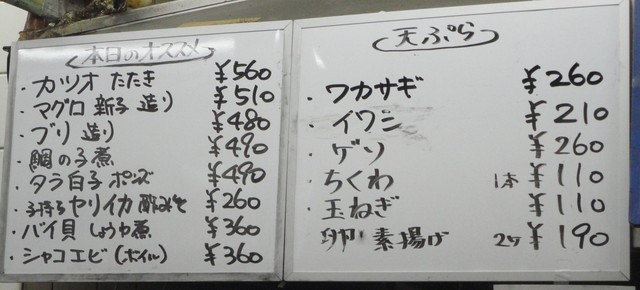 本日のオススメ
・カツオ たたき ¥560
・マグロ 新子 造り ¥510
・ブリ 造り ¥480
・鯛の子煮 ¥490
・タラ白子 ポンズ ¥490
・子持ちヤリイカ 酢みそ ¥260
・バイ貝 しょうゆ煮 ¥360
・シャコエビ(ボイル) ¥360
天ぷら
・ワカサギ ¥260
・イワシ ¥210
・ゲソ ¥260
・ちくわ 1本 ¥110
・玉ねぎ ¥110
・卵・素揚げ 2ケ ¥190